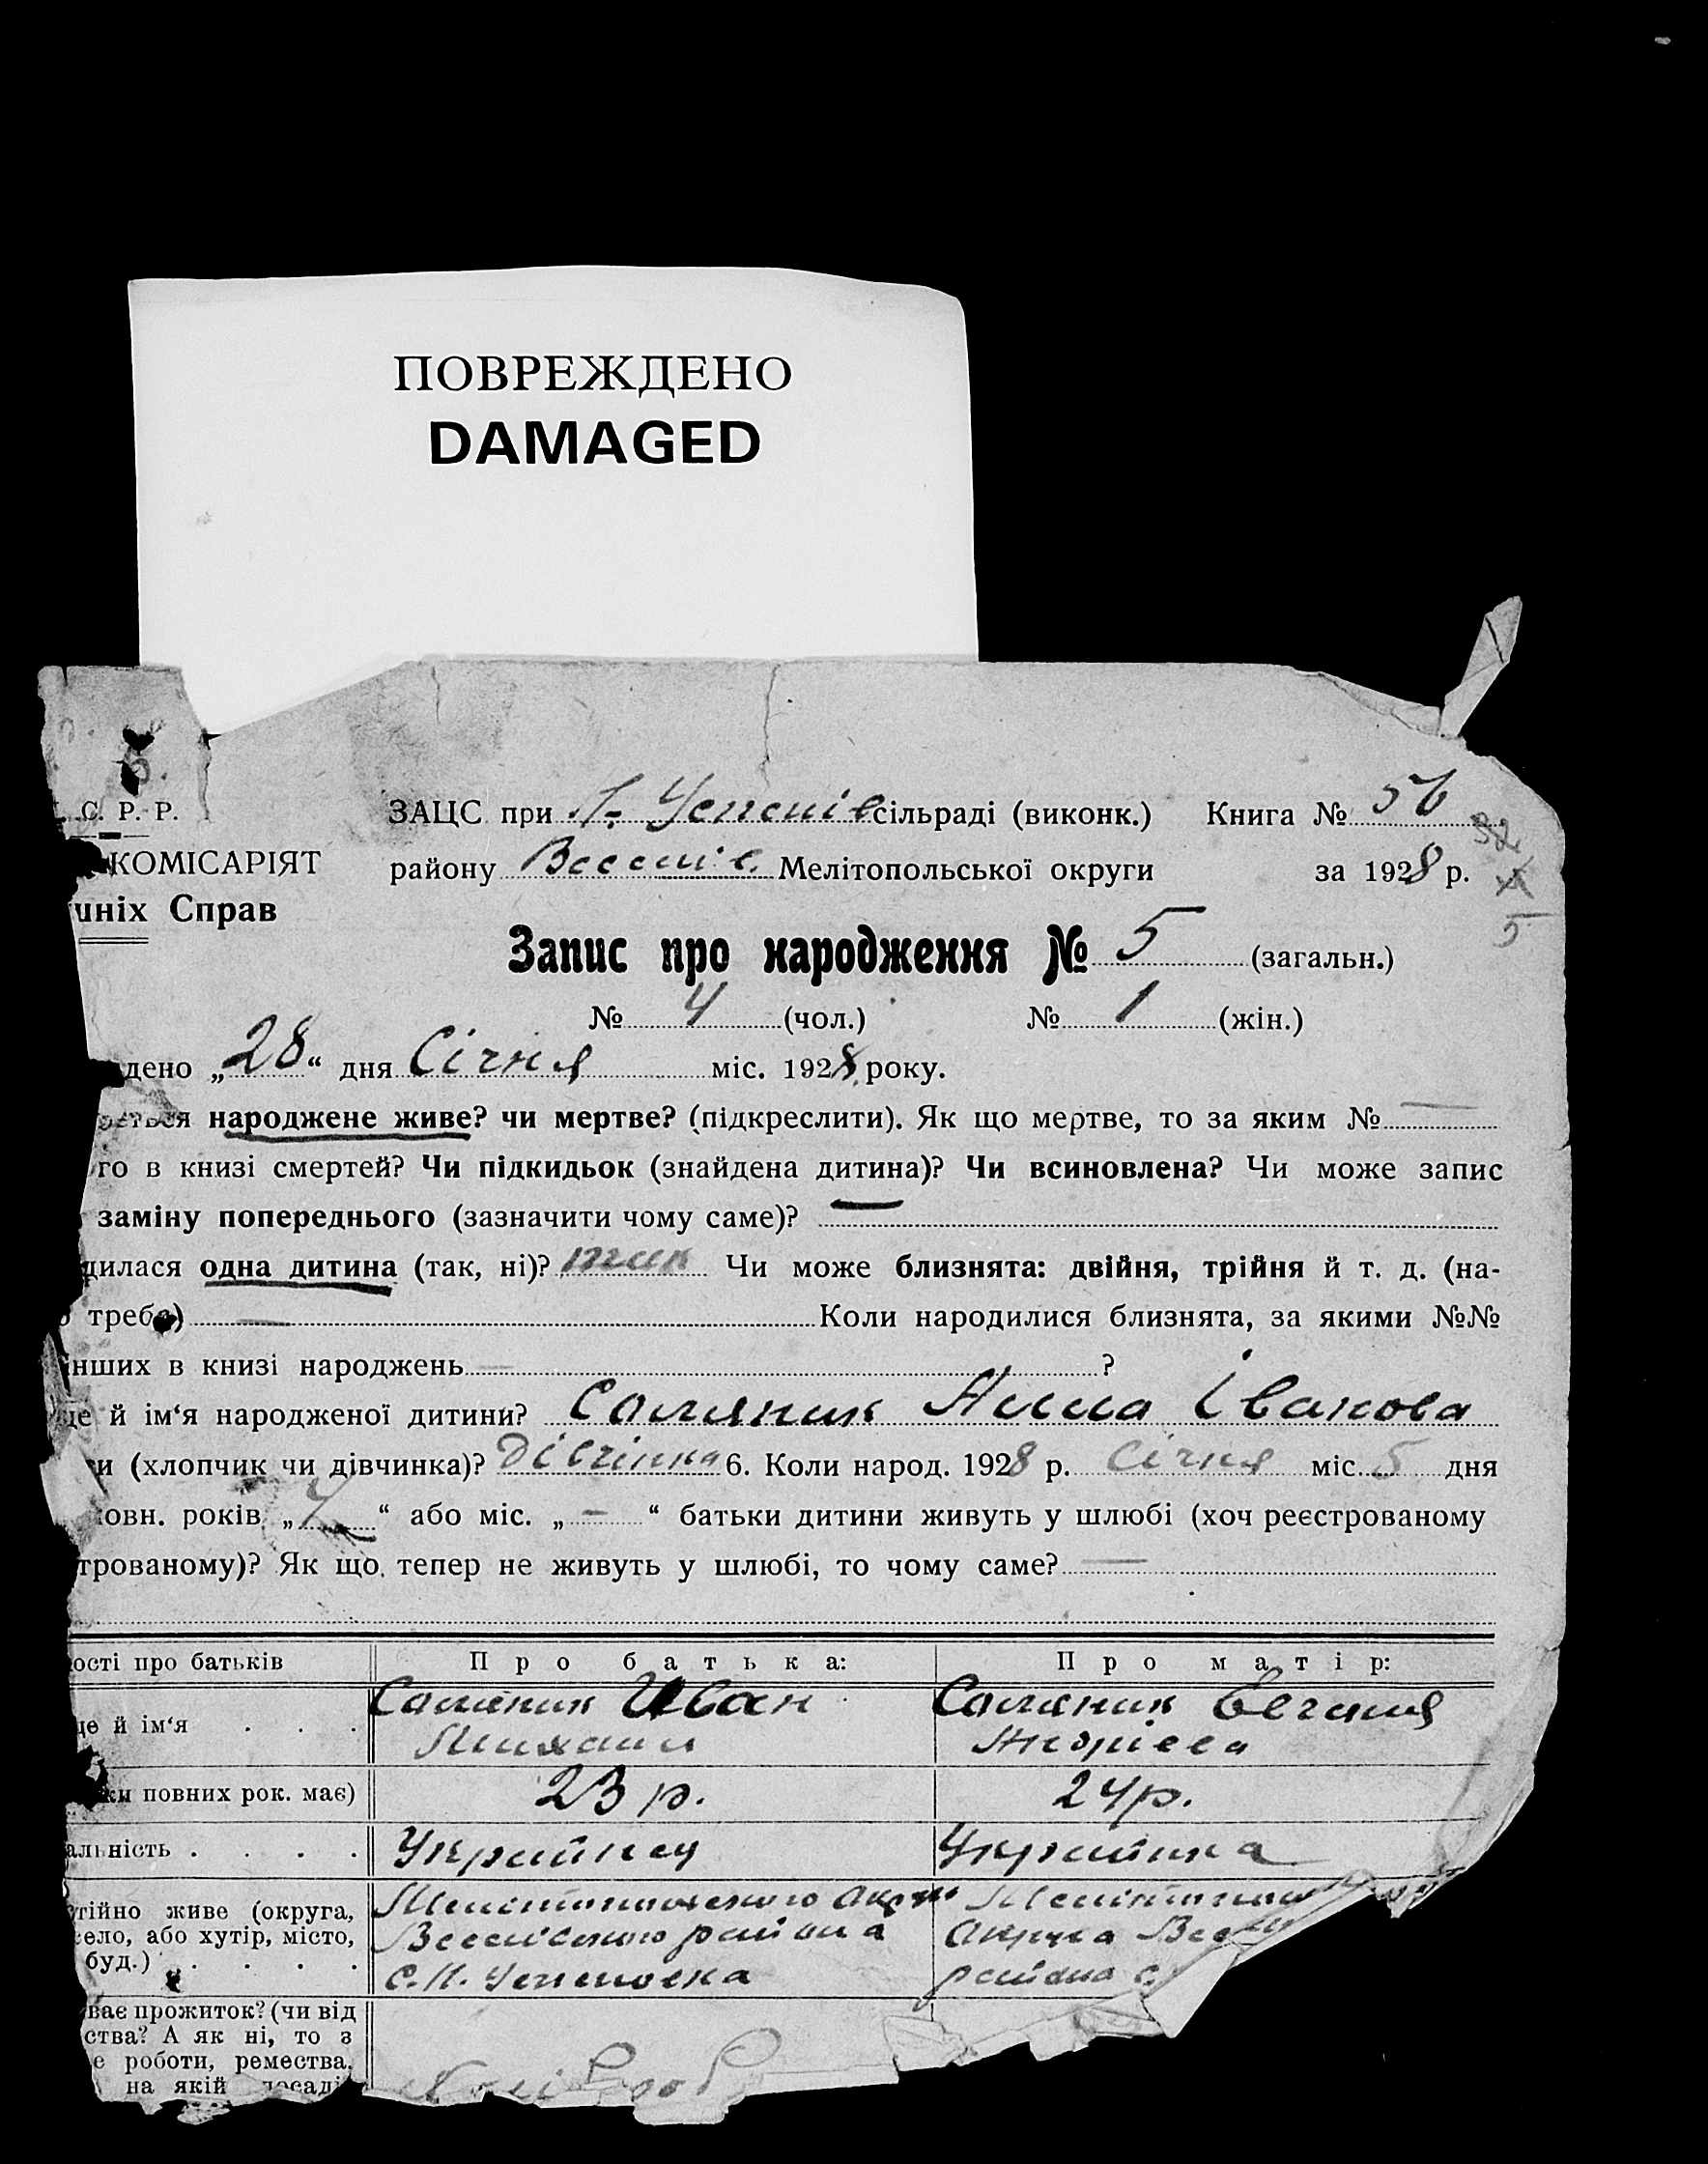 ПОВРЕЖДЕНО
DAMAGED
С. Р. Р.
ЗАЦС при Н-Успенів сільраді (виконк.) Книга № 56
32
КОМІСАРІЯТ
району Веселів. Мелітопольської округи за 1928 р.
шніх Справ
5
Запис про народження № 5 (загальн.)
№ 4 (чол.) № 1 (жін.)
дено „28“ дня Січня міс. 1928 року.
ється народжене живе? чи мертве? (підкреслити). Як що мертве, то за яким № —
го в книзі смертей? Чи підкидьок (знайдена дитина)? Чи всиновлена? Чи може запис
заміну попереднього (зазначити чому саме)? —
дилася одна дитина (так, ні)? так Чи може близнята: двійня, трійня й т. д. (на-
о треба) — Коли народилися близнята, за якими №№
інших в книзі народжень — ?
ще й ім‘я народженої дитини? Соляник Нина Іванова
ти (хлопчик чи дівчинка)? Дівчінка 6. Коли народ. 1928 р. Січня міс. 5 дня
овн. років „ “ або міс. „ – “ батьки дитини живуть у шлюбі (хоч реєстрованому
трованому)? Як що тепер не живуть у шлюбі, то чому саме? —
ості про батьків Про батька: Про матір:
ще й ім‘я . . . Соляник Иван Соляник Евгения
Михаил Андріева
ки повних рок. має) 23 р. 24 р.
альність . . . . Украйнец Украйинка
тійно живе (округа, Мелітопольского Мелітопол
село, або хутір, місто, Веселівского района Округа Весел
буд.) . . . . С. Н. Успеновка района с.
ває прожиток? (чи від
ства? А як ні, то з
е роботи, ремества,
на якій посаді
Хлібороб